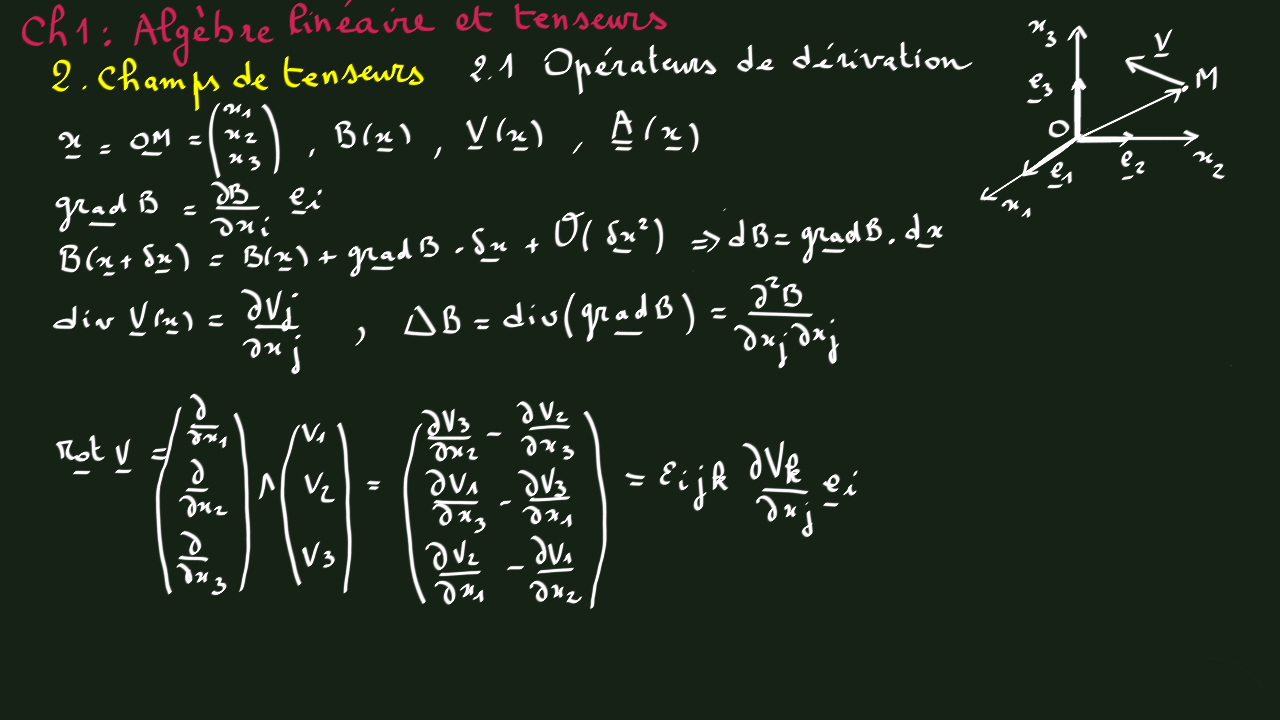 Ch1: Algèbre linéaire et tenseurs
2. Champs de tenseurs 2.1 Opérateurs de dérivation
x = OM = (x1 x2 x3) , B(x) , V(x) , A(x)
grad B = ∂B/∂xi ei
B(x + δx) = B(x) + grad B . δx + O(δx²) ⇒ dB = grad B . dx
div V(x) = ∂Vj/∂xj , ΔB = div(grad B) = ∂²B/∂xj∂xj
Rot V = (∂/∂x1 ∂/∂x2 ∂/∂x3) ∧ (V1 V2 V3) = (∂V3/∂x2 - ∂V2/∂x3 ∂V1/∂x3 - ∂V3/∂x1 ∂V2/∂x1 - ∂V1/∂x2) = εijk ∂Vk/∂xj ei
x3
V
M
e3
O
e1
e2
x2
x1